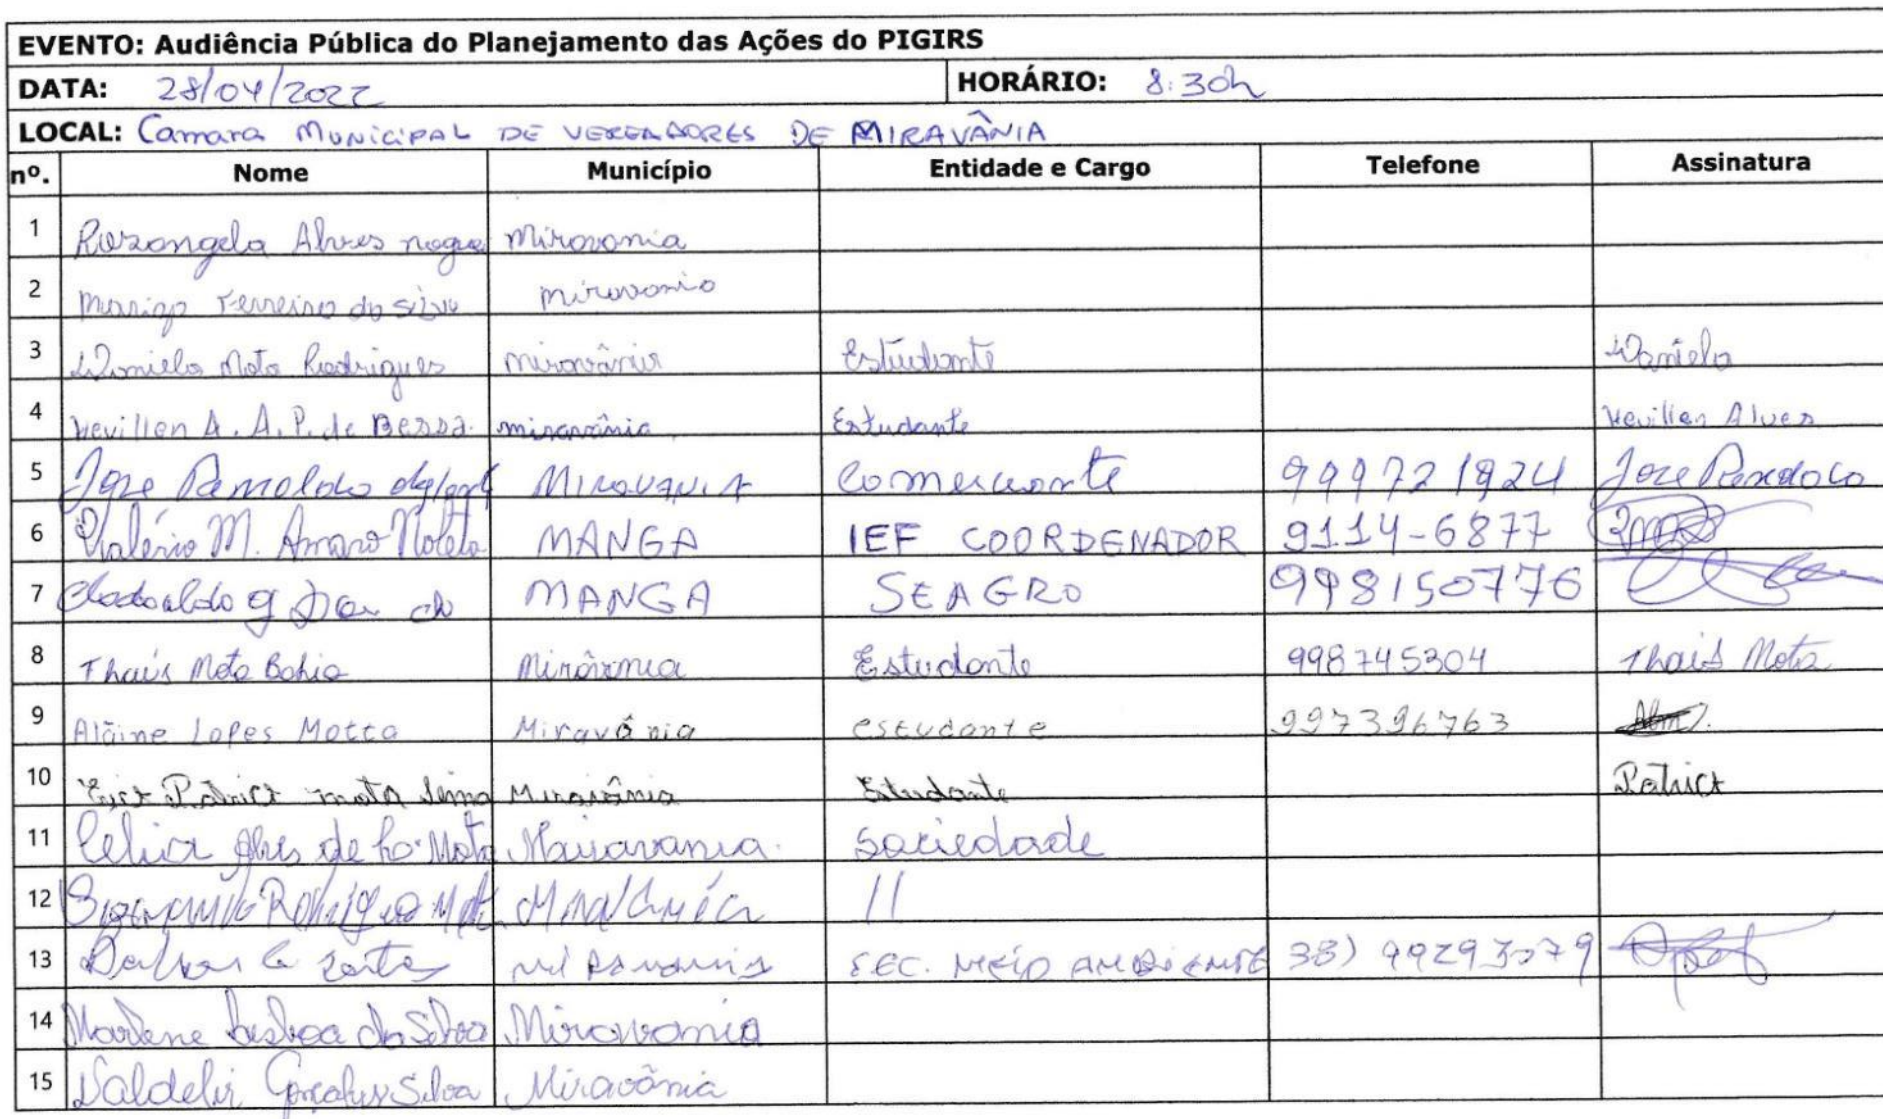 EVENTO: Audiência Pública do Planejamento das Ações do PIGIRS
DATA: 28/04/2022 HORÁRIO: 8:30h
LOCAL: Camara MUNICIPAL DE VEREADORES DE MIRAVÂNIA
nº. Nome Município Entidade e Cargo Telefone Assinatura
1 Rosangela Alves Miravania
2 Ferreira da Silva miravania
3 Daniela Mota Rodrigues miravânia Estudante Daniela
4 Hevillen A. A. P. de Bessa. miravânia. Estudante Hevillen Alves
5 Jose MIRAVANIA Comerciante 999721924 Jose
6 Valério M. Amaro MANGA IEF COORDENADOR 9114-6877
7 MANGA SEAGRO 998150776
8 Thaís Mota Bahia Estudante 998745304 Thais Mota
9 Alaine Lopes Motta Miravânia estudante 997396763
10 Patrict mota lima Miravânia Estudante Patrict
11 Celia Alves de Mota Sociedade
12 Rodrigues //
13 SEC. MEIO AMBIENTE 38)
14 Marlene Lisboa da Silva Miravania
15 Valdelir Gonçalves Silva Miravânia